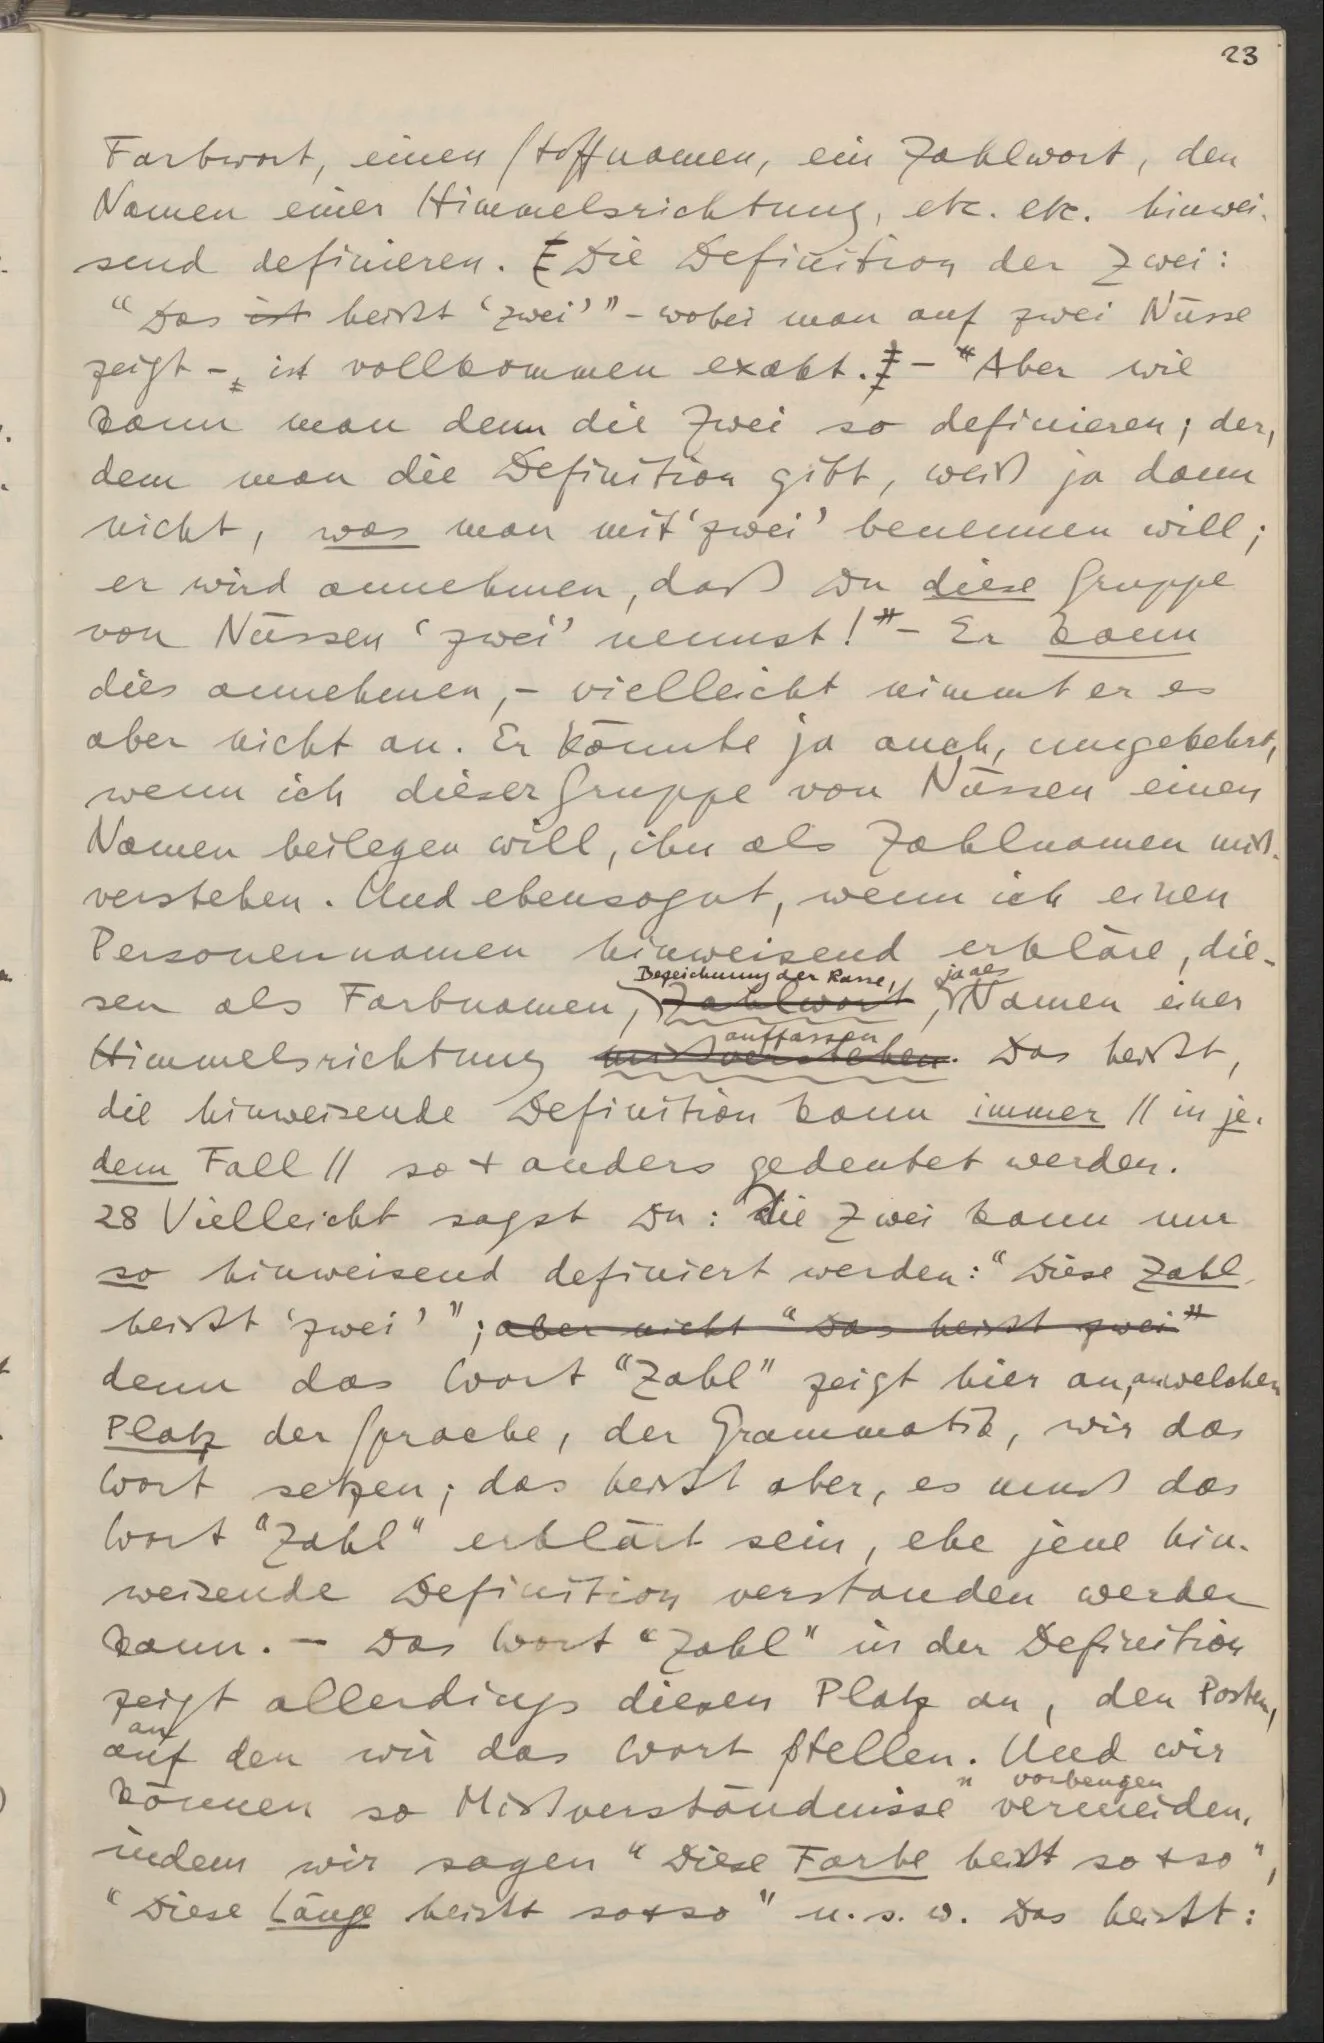 23
Farbwort, einen Stoffnamen, ein Zahlwort, den
Namen einer Himmelsrichtung, etc. etc. hinwei-
send definieren. Die Definition der Zwei:
“Das ist heißt ‘zwei’” – wobei man auf zwei Nüsse
zeigt –, ist vollkommen exakt. – “Aber wie
kann man denn die Zwei so definieren; der,
dem man die Definition gibt, weiß ja dann
nicht, was man mit ‘zwei’ benennen will;
er wird annehmen, daß Du diese Gruppe
von Nüssen ‘zwei’ nennst!” – Er kann
dies annehmen, – vielleicht nimmt er es
aber nicht an. Er könnte ja auch, umgekehrt,
wenn ich dieser Gruppe von Nüssen einen
Namen beilegen will, ihn als Zahlnamen miß-
verstehen. Und ebensogut, wenn ich einen
Personennamen hinweisend erkläre, die-
Bezeichnung der Rasse, ja als
sen als Farbnamen, Zahlwort, Namen einer
auffassen
Himmelsrichtung mißverstehen. Das heißt,
die hinweisende Definition kann immer // in je-
dem Fall // so + anders gedeutet werden.
28 Vielleicht sagst Du: die Zwei kann nur
so hinweisend definiert werden: “Diese Zahl
heißt ‘zwei’”; aber nicht “Das heißt zwei”
denn das Wort “Zahl” zeigt hier an, an welchen
Platz der Sprache, der Grammatik, wir das
Wort setzen; das heißt aber, es muß das
Wort “Zahl” erklärt sein, ehe jene hin-
weisende Definition verstanden werden
kann. – Das Wort “Zahl” in der Definition
zeigt allerdings diesen Platz an, den Posten,
an
auf den wir das Wort stellen. Und wir
n vorbeugen
können so Mißverständnisse vermeiden,
indem wir sagen “Diese Farbe heißt so + so”,
“Diese Länge heißt so + so” u.s.w. Das heißt: